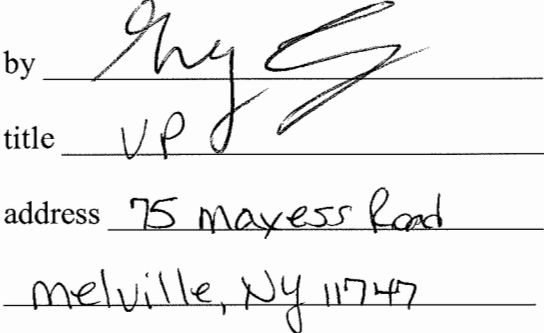 by
title VP
address 75 Maxess Road
Melville, NY 11747